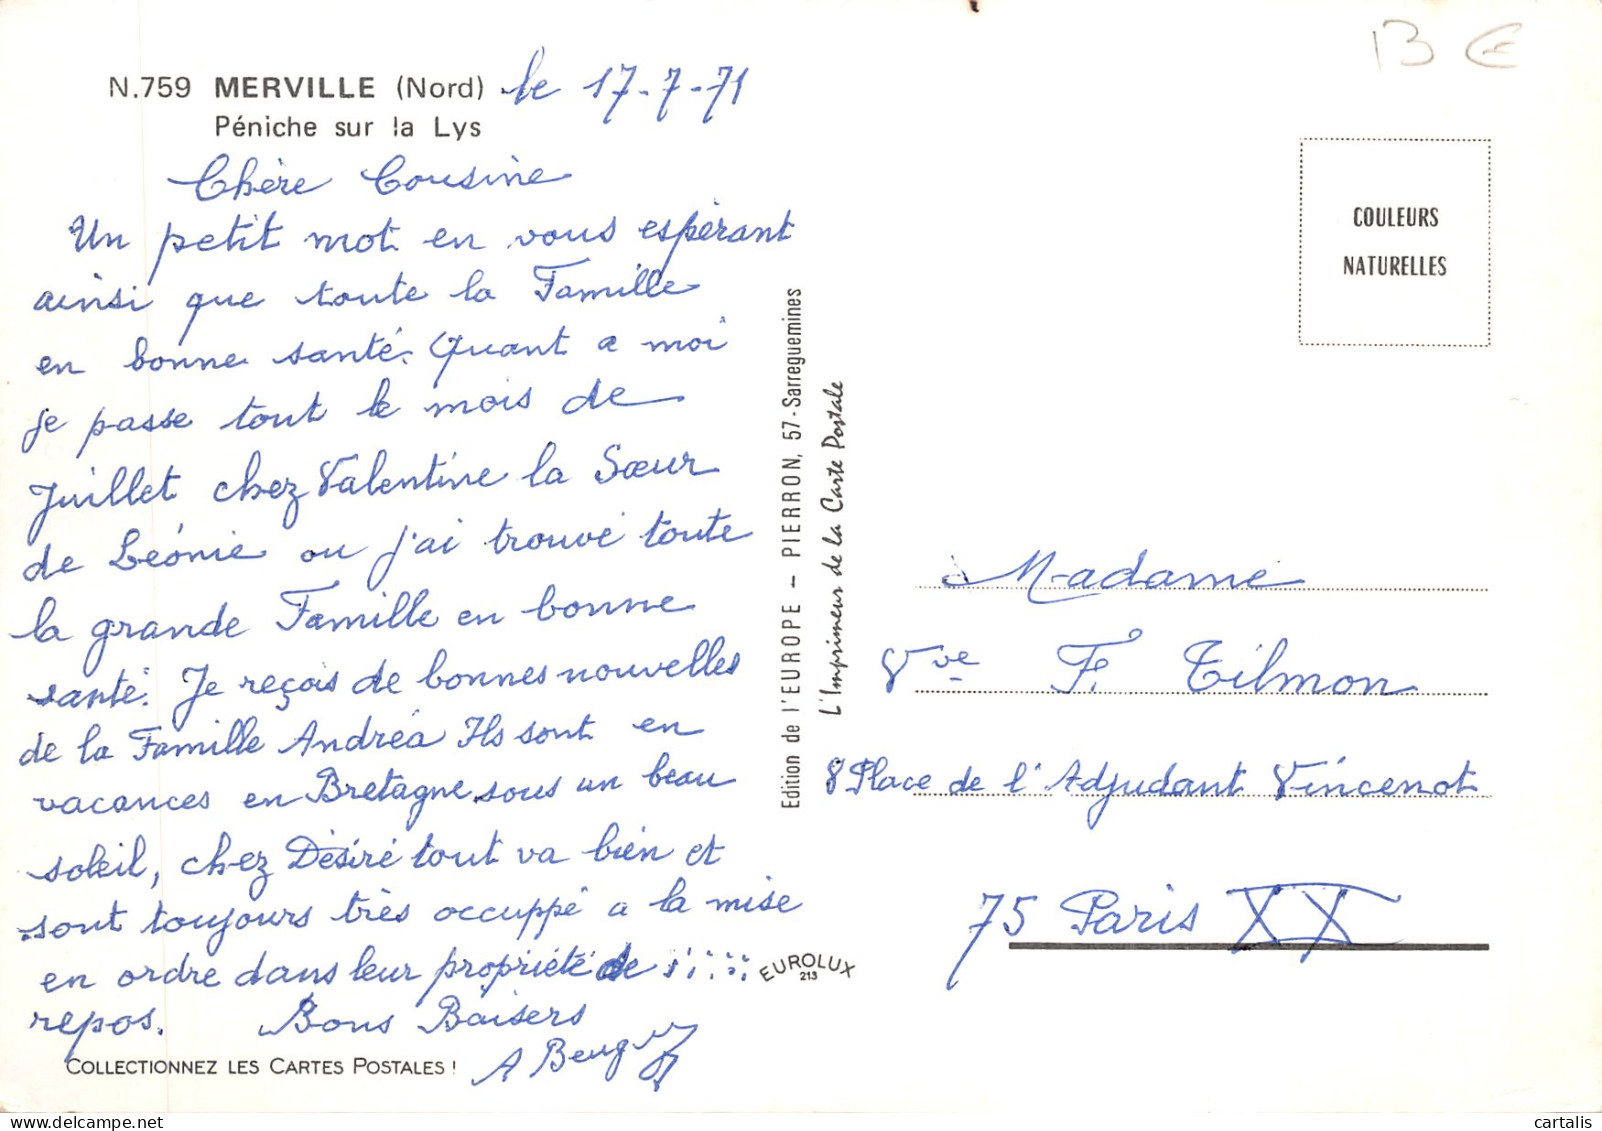 13 €
N.759 MERVILLE (Nord) le 17-7-71
Péniche sur la Lys
Chère Cousine
Un petit mot en vous espérant
ainsi que toute la Famille
en bonne santé. Quant a moi
je passe tout le mois de
Juillet chez Valentine la Sœur
de Léonie ou j'ai trouvé toute
la grande Famille en bonne
santé. Je reçois de bonnes nouvelles
de la Famille Andréa Ils sont en
vacances en Bretagne sous un beau
soleil, chez Désiré tout va bien et
sont toujours très occuppé a la mise
en ordre dans leur propriété de
repos. Bons Baisers
A
COLLECTIONNEZ LES CARTES POSTALES !
EUROLUX
213
Edition de l'EUROPE – PIERRON, 57 - Sarreguemines
L'Imprimeur de la Carte Postale
COULEURS
NATURELLES
à Madame
Vve F. Tilmon
8 Place de l'Adjudant Vincenot
75 Paris XX
cartalis | delcampe.net